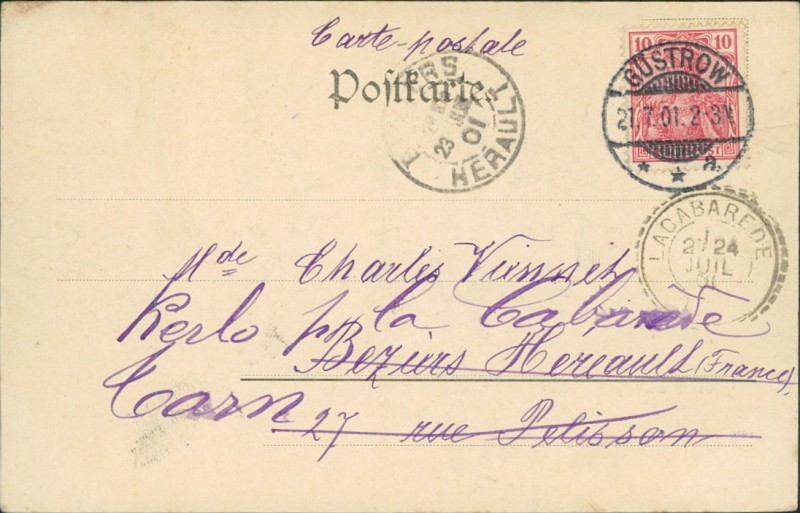 Carte-postale
Postkarte
10 10
GÜSTROW
21.7.01. 2-3N.
a.
23
01
HERAULT
LACABAREDE
24
JUIL
Mde Charles
la Cabarède
Beziers Hereault (France)
Tarn
27 rue Pelisson